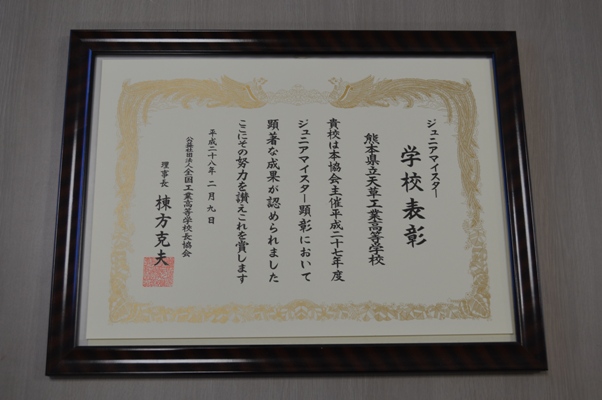 ジュニアマイスター
学校表彰
熊本県立天草工業高等学校
貴校は本協会主催平成二十七年度
ジュニアマイスター顕彰において
顕著な成果が認められました
ここにその努力を讃えこれを賞します
平成二十八年二月九日
公益社団法人全国工業高等学校長協会
理事長 棟方克夫